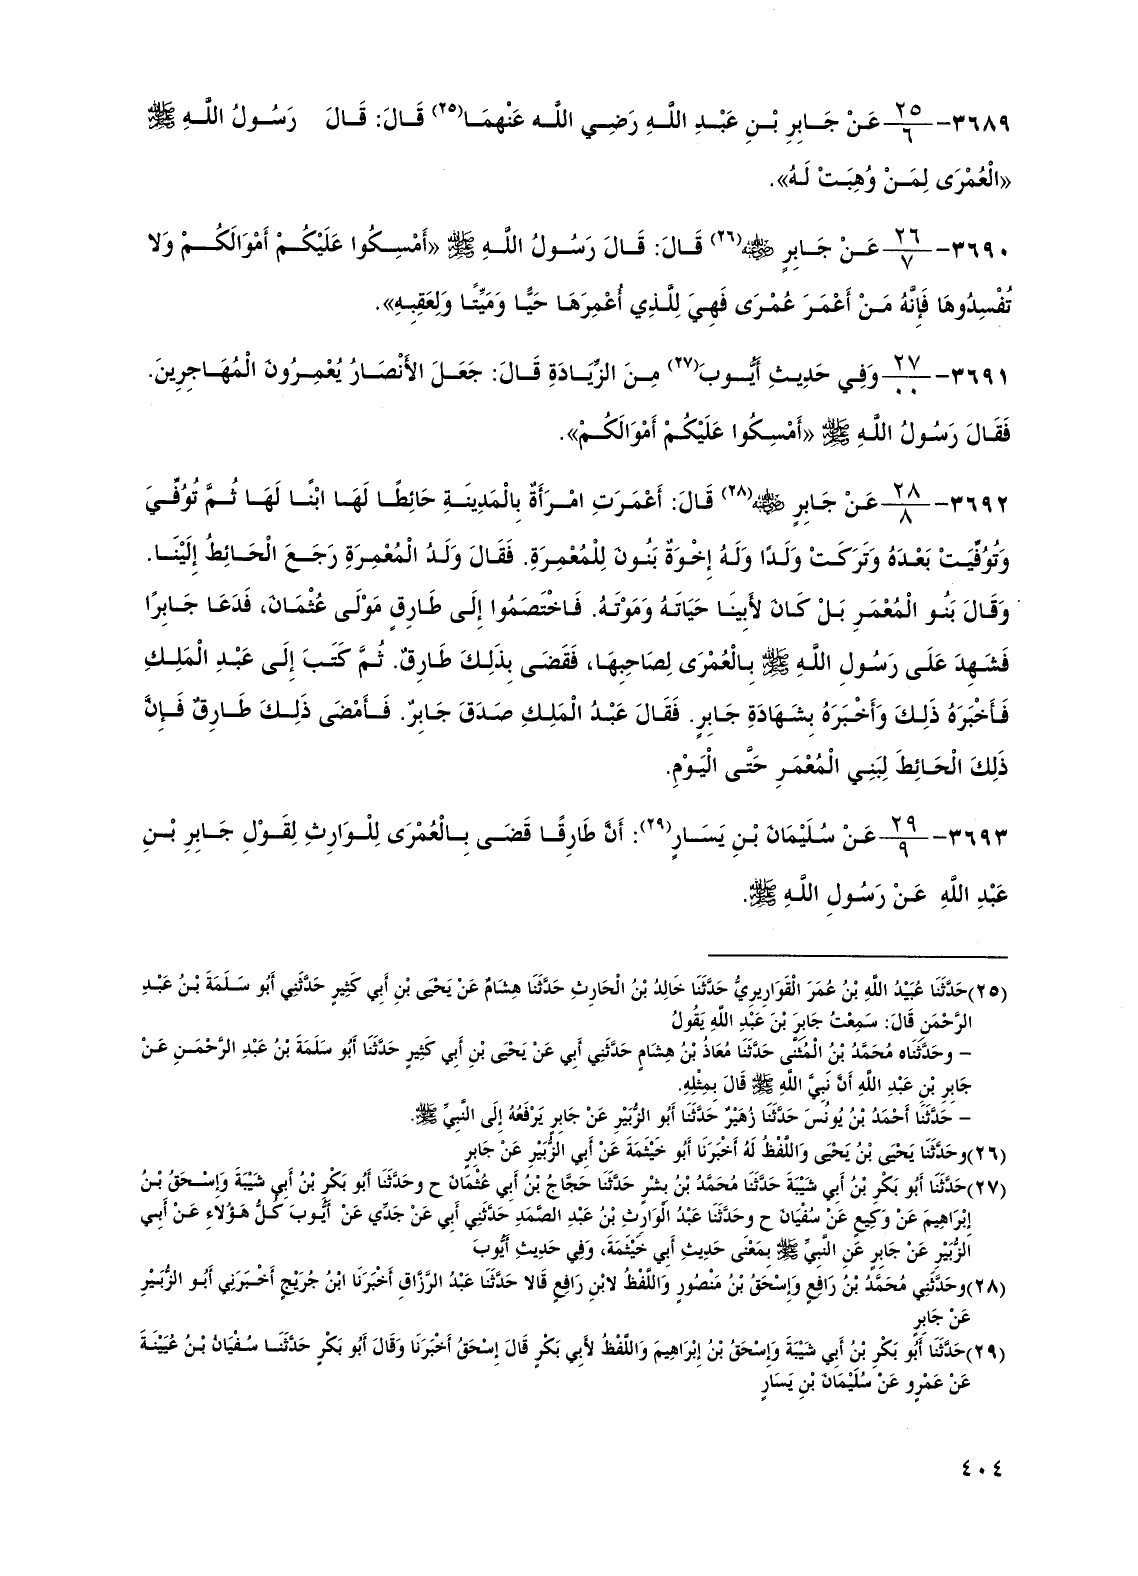 ٣٦٨٩- ٢٥/٦ عَنْ جَابِرِ بْنِ عَبْدِ اللَّهِ رَضِي اللَّه عَنْهمَا(٢٥) قَالَ: قَالَ رَسُولُ اللَّهِ ﷺ
«الْعُمْرَى لِمَنْ وُهِبَتْ لَهُ».
٣٦٩٠- ٢٦/٧ عَنْ جَابِرٍ ﷺ(٢٦) قَالَ: قَالَ رَسُولُ اللَّهِ ﷺ «أَمْسِكُوا عَلَيْكُمْ أَمْوَالَكُمْ وَلا
تُفْسِدُوهَا فَإِنَّهُ مَنْ أَعْمَرَ عُمْرَى فَهِيَ لِلَّذِي أُعْمِرَهَا حَيًّا وَمَيِّتًا وَلِعَقِبِهِ».
٣٦٩١- ٢٧/٠٠ وَفِي حَدِيثِ أَيُّوبَ(٢٧) مِنَ الزِّيَادَةِ قَالَ: جَعَلَ الأَنْصَارُ يُعْمِرُونَ الْمُهَاجِرِينَ.
فَقَالَ رَسُولُ اللَّهِ ﷺ «أَمْسِكُوا عَلَيْكُمْ أَمْوَالَكُمْ».
٣٦٩٢- ٢٨/٨ عَنْ جَابِرٍ ﷺ(٢٨) قَالَ: أَعْمَرَتِ امْرَأَةٌ بِالْمَدِينَةِ حَائِطًا لَهَا ابْنًا لَهَا ثُمَّ تُوُفِّيَ
وَتُوُفِّيَتْ بَعْدَهُ وَتَرَكَتْ وَلَدًا وَلَهُ إِخْوَةٌ بَنُونَ لِلْمُعْمِرَةِ. فَقَالَ وَلَدُ الْمُعْمِرَةِ رَجَعَ الْحَائِطُ إِلَيْنَا.
وَقَالَ بَنُو الْمُعْمَرِ بَلْ كَانَ لأَبِينَا حَيَاتَهُ وَمَوْتَهُ. فَاخْتَصَمُوا إِلَى طَارِقٍ مَوْلَى عُثْمَانَ، فَدَعَا جَابِرًا
فَشَهِدَ عَلَى رَسُولِ اللَّهِ ﷺ بِالْعُمْرَى لِصَاحِبِهَا، فَقَضَى بِذَلِكَ طَارِقٌ. ثُمَّ كَتَبَ إِلَى عَبْدِ الْمَلِكِ
فَأَخْبَرَهُ ذَلِكَ وَأَخْبَرَهُ بِشَهَادَةِ جَابِرٍ. فَقَالَ عَبْدُ الْمَلِكِ صَدَقَ جَابِرٌ. فَأَمْضَى ذَلِكَ طَارِقٌ فَإِنَّ
ذَلِكَ الْحَائِطَ لِبَنِي الْمُعْمَرِ حَتَّى الْيَوْمِ.
٣٦٩٣- ٢٩/٩ عَنْ سُلَيْمَانَ بْنِ يَسَارٍ(٢٩): أَنَّ طَارِقًا قَضَى بِالْعُمْرَى لِلْوَارِثِ لِقَوْلِ جَابِرِ بْنِ
عَبْدِ اللَّهِ عَنْ رَسُولِ اللَّهِ ﷺ.
(٢٥)حَدَّثَنَا عُبَيْدُ اللَّهِ بْنُ عُمَرَ الْقَوَارِيرِيُّ حَدَّثَنَا خَالِدُ بْنُ الْحَارِثِ حَدَّثَنَا هِشَامٌ عَنْ يَحْيَى بْنِ أَبِي كَثِيرٍ حَدَّثَنِي أَبُو سَلَمَةَ بْنُ عَبْدِ
الرَّحْمَنِ قَالَ: سَمِعْتُ جَابِرَ بْنَ عَبْدِ اللَّهِ يَقُولُ
– وحَدَّثَنَاه مُحَمَّدُ بْنُ الْمُثَنَّى حَدَّثَنَا مُعَاذُ بْنُ هِشَامٍ حَدَّثَنِي أَبِي عَنْ يَحْيَى بْنِ أَبِي كَثِيرٍ حَدَّثَنَا أَبُو سَلَمَةَ بْنُ عَبْدِ الرَّحْمَنِ عَنْ
جَابِرِ بْنِ عَبْدِ اللَّهِ أَنَّ نَبِيَّ اللَّهِ ﷺ قَالَ بِمِثْلِهِ.
– حَدَّثَنَا أَحْمَدُ بْنُ يُونُسَ حَدَّثَنَا زُهَيْرٌ حَدَّثَنَا أَبُو الزُّبَيْرِ عَنْ جَابِرٍ يَرْفَعُهُ إِلَى النَّبِيِّ ﷺ.
(٢٦)وحَدَّثَنَا يَحْيَى بْنُ يَحْيَى وَاللَّفْظُ لَهُ أَخْبَرَنَا أَبُو خَيْثَمَةَ عَنْ أَبِي الزُّبَيْرِ عَنْ جَابِرٍ
(٢٧)حَدَّثَنَا أَبُو بَكْرِ بْنُ أَبِي شَيْبَةَ حَدَّثَنَا مُحَمَّدُ بْنُ بِشْرٍ حَدَّثَنَا حَجَّاجُ بْنُ أَبِي عُثْمَانَ ح وحَدَّثَنَا أَبُو بَكْرِ بْنُ أَبِي شَيْبَةَ وَإِسْحَقُ بْنُ
إِبْرَاهِيمَ عَنْ وَكِيعٍ عَنْ سُفْيَانَ ح وحَدَّثَنَا عَبْدُ الْوَارِثِ بْنُ عَبْدِ الصَّمَدِ حَدَّثَنِي أَبِي عَنْ جَدِّي عَنْ أَيُّوبَ كُلُّ هَؤُلاءِ عَنْ أَبِي
الزُّبَيْرِ عَنْ جَابِرٍ عَنِ النَّبِيِّ ﷺ بِمَعْنَى حَدِيثِ أَبِي خَيْثَمَةَ، وَفِي حَدِيثِ أَيُّوبَ
(٢٨)وحَدَّثَنِي مُحَمَّدُ بْنُ رَافِعٍ وَإِسْحَقُ بْنُ مَنْصُورٍ وَاللَّفْظُ لابْنِ رَافِعٍ قَالا حَدَّثَنَا عَبْدُ الرَّزَّاقِ أَخْبَرَنَا ابْنُ جُرَيْجٍ أَخْبَرَنِي أَبُو الزُّبَيْرِ
عَنْ جَابِرٍ
(٢٩)حَدَّثَنَا أَبُو بَكْرِ بْنُ أَبِي شَيْبَةَ وَإِسْحَقُ بْنُ إِبْرَاهِيمَ وَاللَّفْظُ لأَبِي بَكْرٍ قَالَ إِسْحَقُ أَخْبَرَنَا وَقَالَ أَبُو بَكْرٍ حَدَّثَنَا سُفْيَانُ بْنُ عُيَيْنَةَ
عَنْ عَمْرٍو عَنْ سُلَيْمَانَ بْنِ يَسَارٍ
٤٠٤